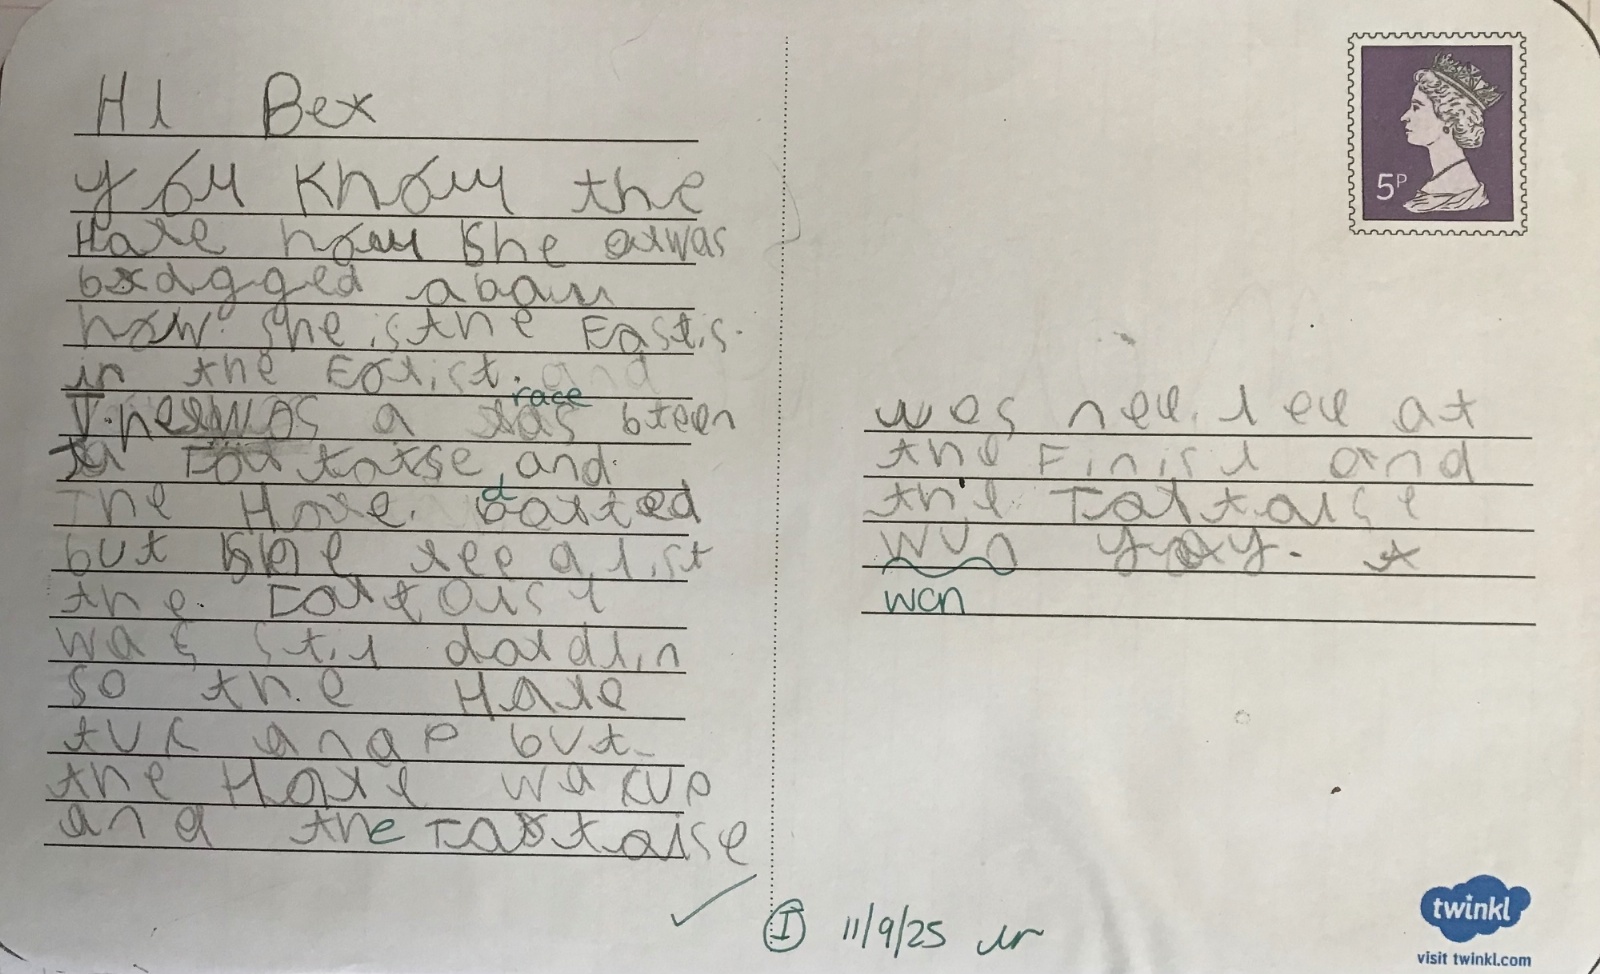 Hi Bex
you know the
Hare how she alwas
bragged abaw
how she is the Fastis
in the Forist. and
Ther was a race bteen
Tortoise and
The Hare. darted
but she reealist
the. Tortoise
was stil dordlin
so the Hare
tuk anap but
the Hare wakup
and the Tortoise
was neer
at
the Finish and
the Tortoise
wun yay.
won
5P
11/9/25
twinkl
visit twinkl.com